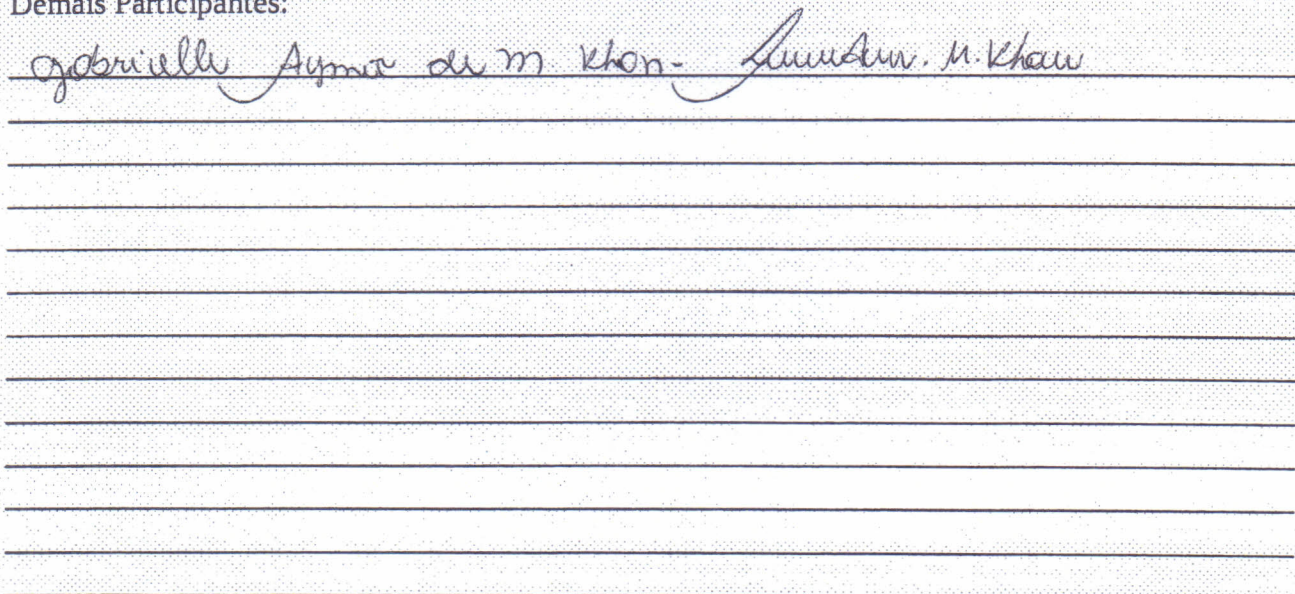 Demais Participantes:
Gabrielle de M. Khan - M. Khan